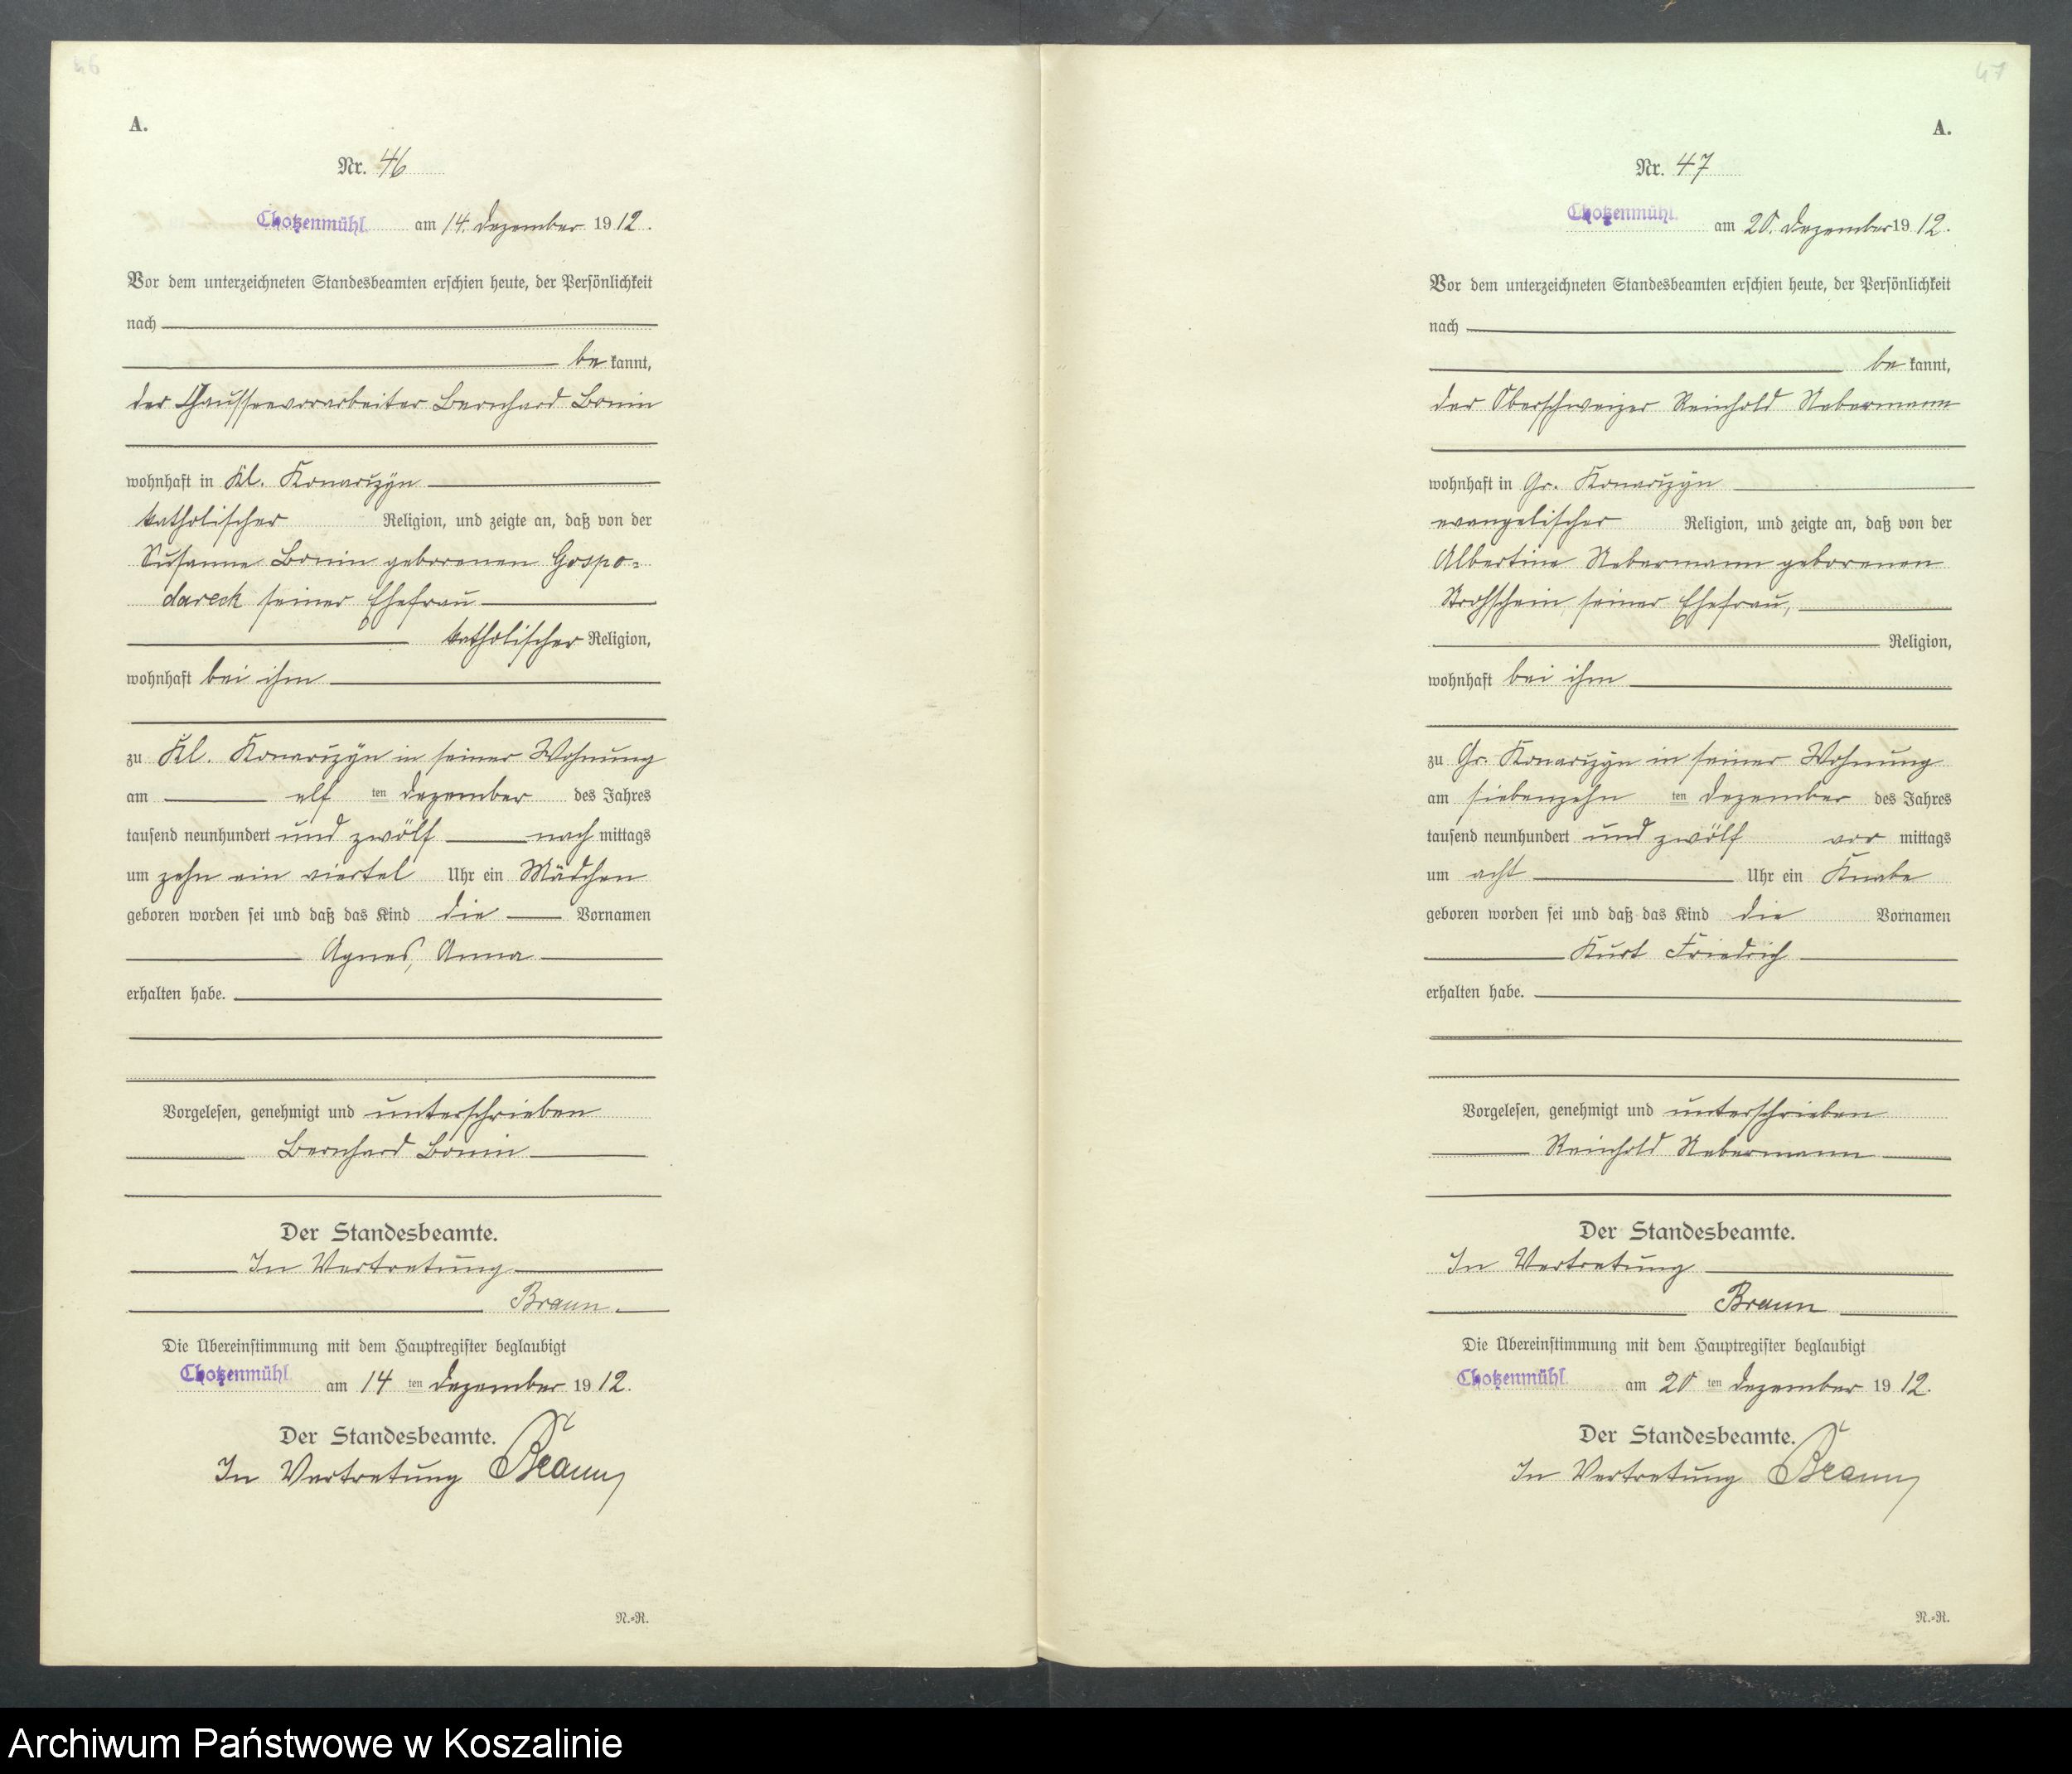 46
A.
Nr. 46
Chotzenmühl. am 14. Dezember 1912.
Vor dem unterzeichneten Standesbeamten erschien heute, der Persönlichkeit
nach
be kannt,
der Chausseevorarbeiter Bernhard Bonin
wohnhaft in Kl. Konarczyn
katholischer Religion, und zeigte an, daß von der
Susanne Bonin geborenen Gospo-
dareck seiner Ehefrau
katholischer Religion,
wohnhaft bei ihm
zu Kl. Konarczyn in seiner Wohnung
am elf ten Dezember des Jahres
tausend neunhundert und zwölf nach mittags
um zehn ein viertel Uhr ein Mädchen
geboren worden sei und daß das Kind die Vornamen
Agnes, Anna
erhalten habe.
Vorgelesen, genehmigt und unterschrieben
Bernhard Bonin
Der Standesbeamte.
In Vertretung
Braun.
Die Übereinstimmung mit dem Hauptregister beglaubigt
Chotzenmühl. am 14 ten Dezember 1912.
Der Standesbeamte.
In Vertretung Braun
N.-R.
47
A.
Nr. 47
Chotzenmühl. am 20. Dezember 1912.
Vor dem unterzeichneten Standesbeamten erschien heute, der Persönlichkeit
nach
be kannt,
der Oberschweizer Reinhold Nebermann
wohnhaft in Gr. Konarczyn
evangelischer Religion, und zeigte an, daß von der
Albertine Nebermann geborenen
Strohschein seiner Ehefrau,
Religion,
wohnhaft bei ihm
zu Gr. Konarczyn in seiner Wohnung
am siebenzehn ten Dezember des Jahres
tausend neunhundert und zwölf vor mittags
um acht Uhr ein Knabe
geboren worden sei und daß das Kind die Vornamen
Kurt Friedrich
erhalten habe.
Vorgelesen, genehmigt und unterschrieben
Reinhold Nebermann
Der Standesbeamte.
In Vertretung
Braun
Die Übereinstimmung mit dem Hauptregister beglaubigt
Chotzenmühl. am 20 ten Dezember 1912.
Der Standesbeamte.
In Vertretung Braun
N.-R.
Archiwum Państwowe w Koszalinie